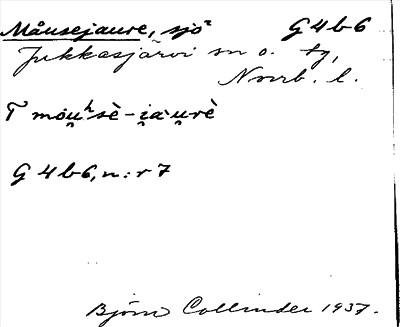 Måusejaure, sjö² G4b6
Jukkasjärvi sn o. tg,
Norrb. l.
T mou̯ʰsè-i̯au̯rè
G 4b6, n:r 7
Björn Collinder 1937.